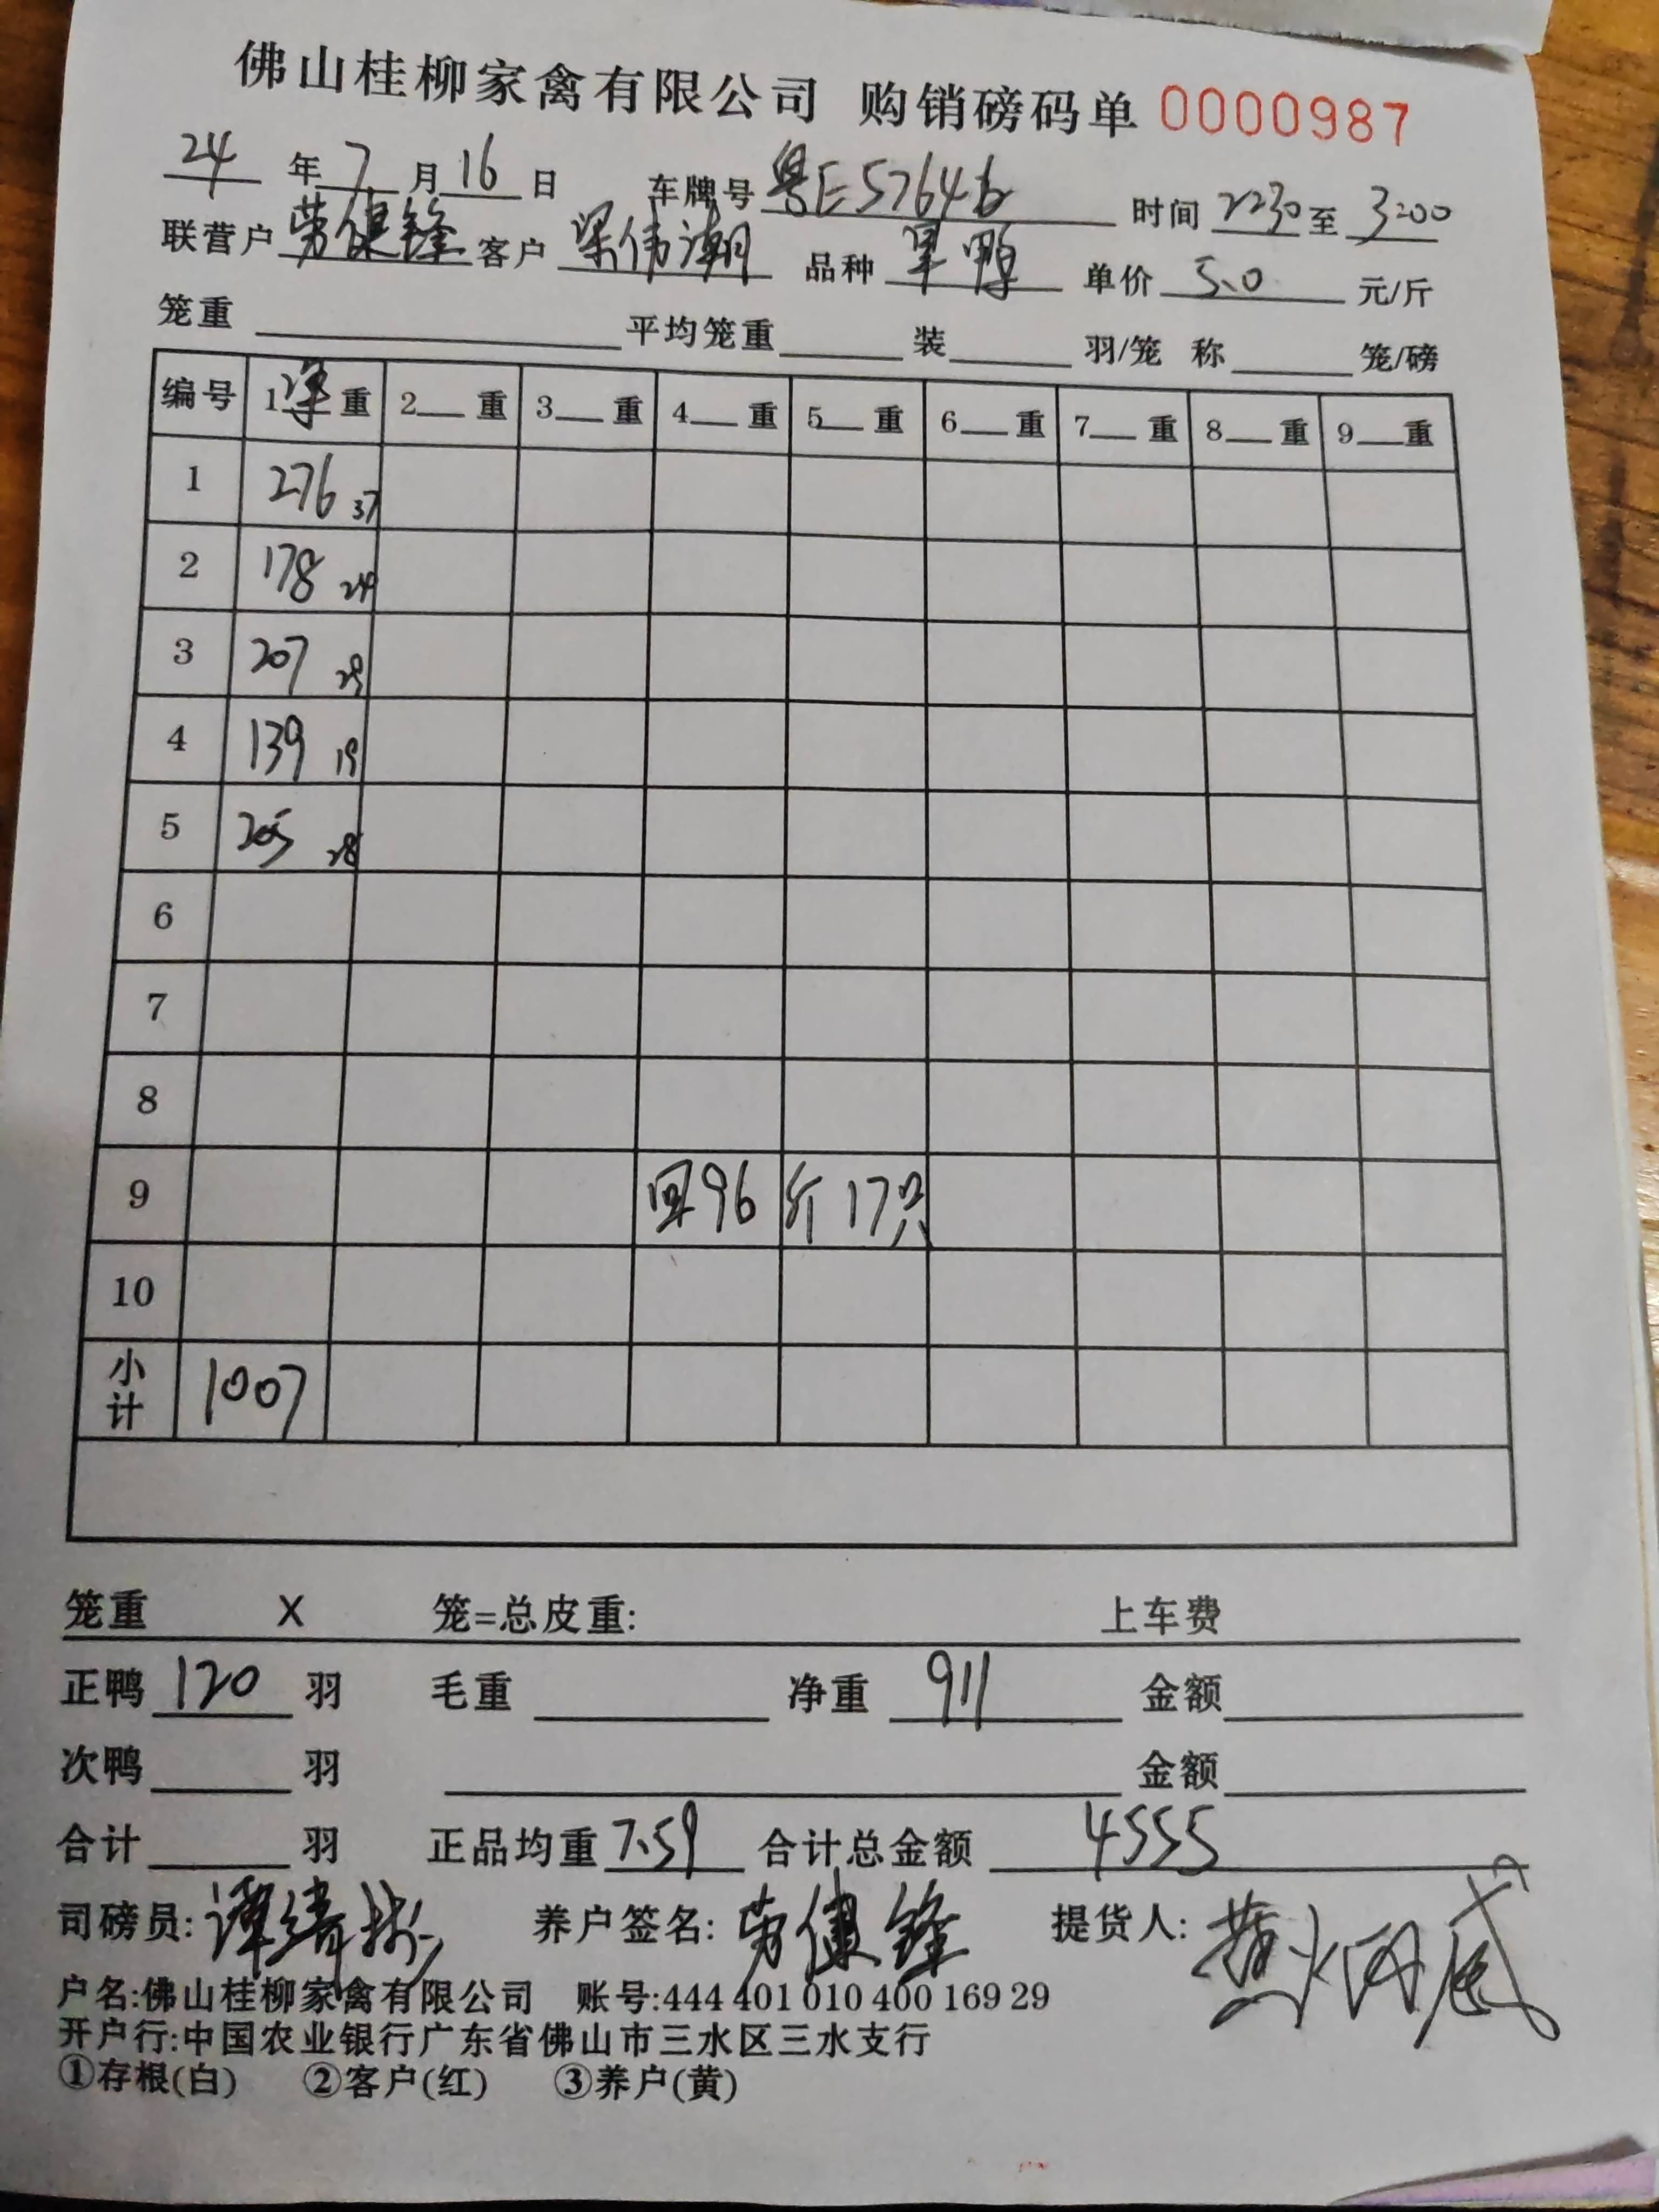 佛山桂柳家禽有限公司 购销磅码单 0000987
24 年 7 月 16 日 车牌号 粤E57646 时间 2230 至 3:00
联营户 劳健锋 客户 梁伟潮 品种 旱鸭 单价 5.0 元/斤
笼重 平均笼重 装 羽/笼 称 笼/磅
编号 1 净 重 2 重 3 重 4 重 5 重 6 重 7 重 8 重 9 重
1 276 37
2 178 24
3 207 29
4 139 19
5 205 28
6
7
8
9 回96斤 17只
10
小计 1007
笼重 X 笼=总皮重: 上车费
正鸭 120 羽 毛重 净重 911 金额
次鸭 羽 金额
合计 羽 正品均重 7.59 合计总金额 4555
司磅员: 谭 养户签名: 劳健锋 提货人: 黄炳
户名:佛山桂柳家禽有限公司 账号:444 401 010 400 169 29
开户行:中国农业银行广东省佛山市三水区三水支行
①存根(白) ②客户(红) ③养户(黄)